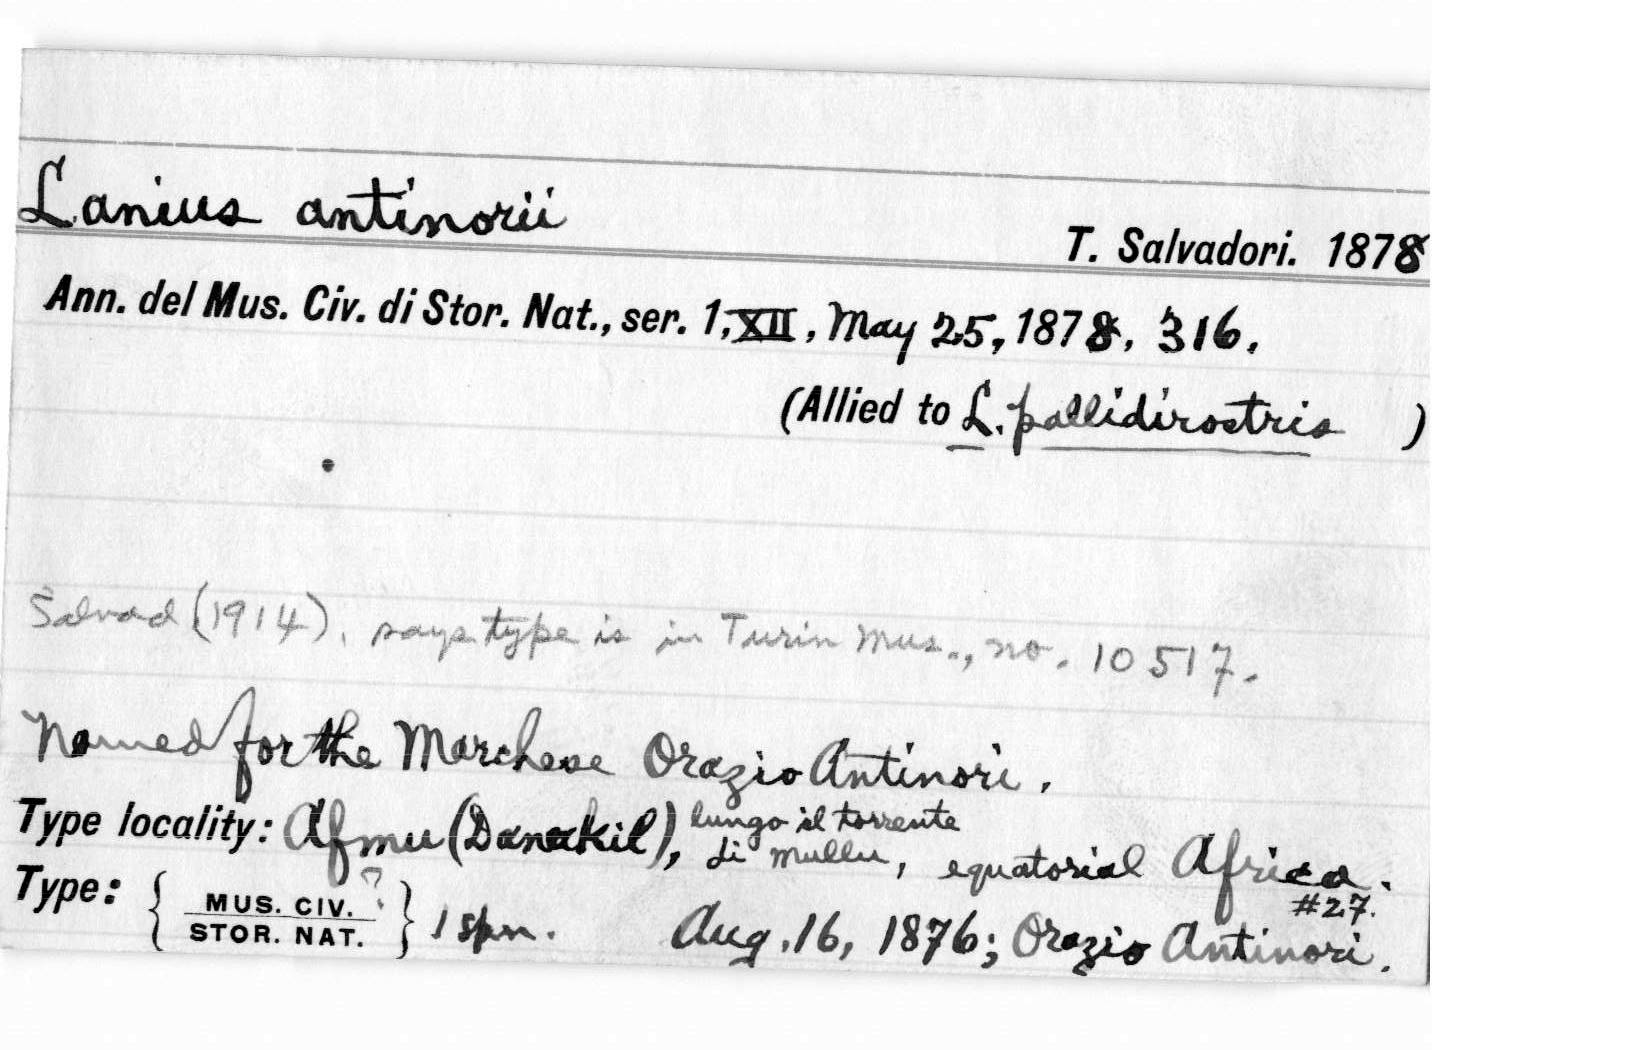 Lanius antinorii
T. Salvadori. 1878
Ann. del Mus. Civ. di Stor. Nat., ser. 1, XII, May 25, 1878, 316.
(Allied to L. pallidirostris )
Salvad (1914), says type is in Turin Mus., no. 10517.
Named for the Marchese Orazio Antinori.
Type locality: Afmu (Danakil), lungo il torrente
di Mullu, equatorial Africa.
#27.
Type: { MUS. CIV. ?
STOR. NAT. } 1 spn. Aug. 16, 1876; Orazio Antinori.